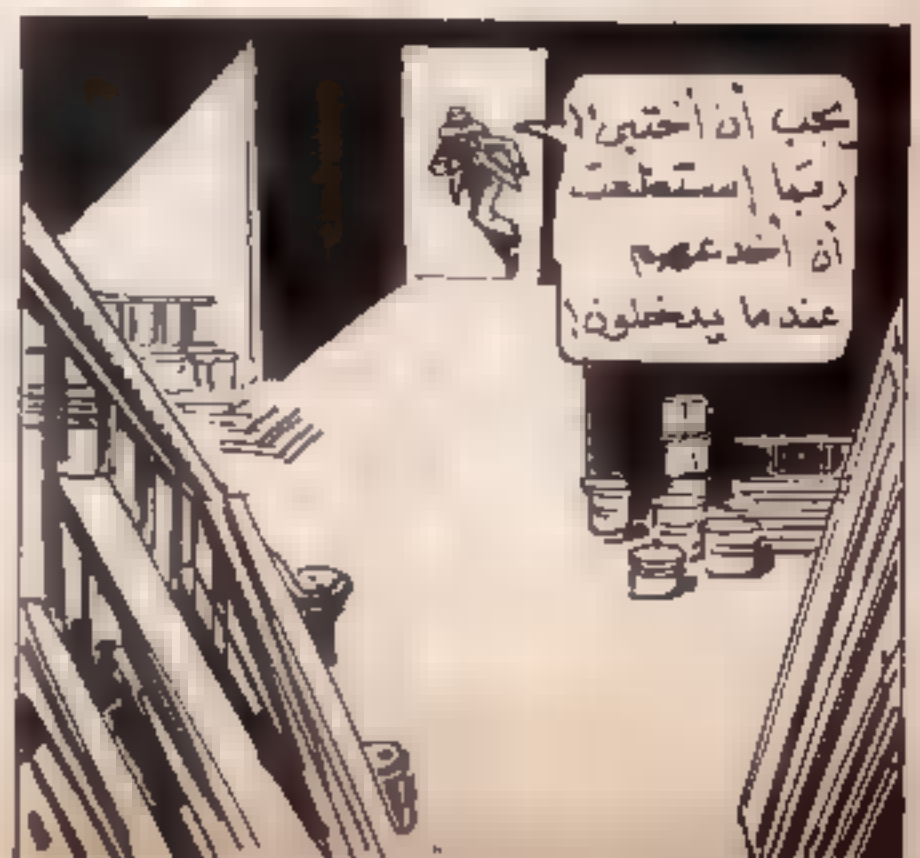 يجب أن أختبئ !!
ربّما إستطعت
أن أخدعهم
عندما يدخلون !